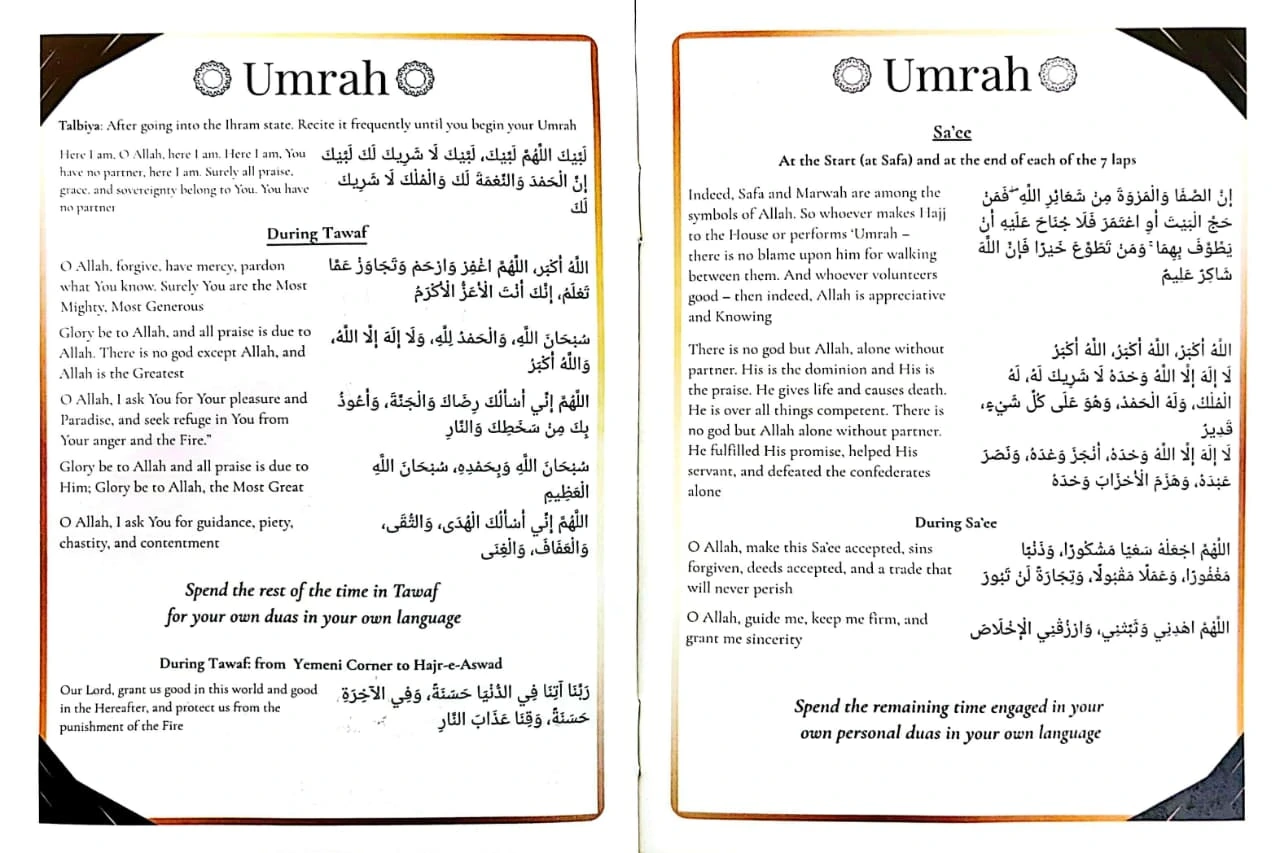 Umrah
Talbiya: After going into the Ihram state. Recite it frequently until you begin your Umrah
Here I am, O Allah, here I am. Here I am, You
have no partner, here I am. Surely all praise,
grace, and sovereignty belong to You. You have
no partner
لَبَّيْكَ اللَّهُمَّ لَبَّيْكَ، لَبَّيْكَ لَا شَرِيكَ لَكَ لَبَّيْكَ
إِنَّ الْحَمْدَ وَالنِّعْمَةَ لَكَ وَالْمُلْكَ لَا شَرِيكَ
لَكَ
During Tawaf
O Allah, forgive, have mercy, pardon
what You know. Surely You are the Most
Mighty, Most Generous
اللَّهُ أَكْبَر، اللَّهُمَّ اغْفِرْ وَارْحَمْ وَتَجَاوَزْ عَمَّا
تَعْلَمُ، إِنَّكَ أَنْتَ الْأَعَزُّ الْأَكْرَمُ
Glory be to Allah, and all praise is due to
Allah. There is no god except Allah, and
Allah is the Greatest
سُبْحَانَ اللَّهِ، وَالْحَمْدُ لِلَّهِ، وَلَا إِلَهَ إِلَّا اللَّهُ،
وَاللَّهُ أَكْبَرُ
O Allah, I ask You for Your pleasure and
Paradise, and seek refuge in You from
Your anger and the Fire.”
اللَّهُمَّ إِنِّي أَسْأَلُكَ رِضَاكَ وَالْجَنَّةَ، وَأَعُوذُ
بِكَ مِنْ سَخَطِكَ وَالنَّارِ
Glory be to Allah and all praise is due to
Him; Glory be to Allah, the Most Great
سُبْحَانَ اللَّهِ وَبِحَمْدِهِ، سُبْحَانَ اللَّهِ
الْعَظِيمِ
O Allah, I ask You for guidance, piety,
chastity, and contentment
اللَّهُمَّ إِنِّي أَسْأَلُكَ الْهُدَى، وَالتُّقَى،
وَالْعَفَافَ، وَالْغِنَى
Spend the rest of the time in Tawaf
for your own duas in your own language
During Tawaf: from Yemeni Corner to Hajr-e-Aswad
Our Lord, grant us good in this world and good
in the Hereafter, and protect us from the
punishment of the Fire
رَبَّنَا آتِنَا فِي الدُّنْيَا حَسَنَةً، وَفِي الْآخِرَةِ
حَسَنَةً، وَقِنَا عَذَابَ النَّارِ
Umrah
Sa’ee
At the Start (at Safa) and at the end of each of the 7 laps
Indeed, Safa and Marwah are among the
symbols of Allah. So whoever makes Hajj
to the House or performs ‘Umrah –
there is no blame upon him for walking
between them. And whoever volunteers
good – then indeed, Allah is appreciative
and Knowing
إِنَّ الصَّفَا وَالْمَرْوَةَ مِنْ شَعَائِرِ اللَّهِ ۖ فَمَنْ
حَجَّ الْبَيْتَ أَوِ اعْتَمَرَ فَلَا جُنَاحَ عَلَيْهِ أَنْ
يَطَّوَّفَ بِهِمَا ۚ وَمَنْ تَطَوَّعَ خَيْرًا فَإِنَّ اللَّهَ
شَاكِرٌ عَلِيمٌ
There is no god but Allah, alone without
partner. His is the dominion and His is
the praise. He gives life and causes death.
He is over all things competent. There is
no god but Allah alone without partner.
He fulfilled His promise, helped His
servant, and defeated the confederates
alone
اللَّهُ أَكْبَرُ، اللَّهُ أَكْبَرُ، اللَّهُ أَكْبَرُ
لَا إِلَهَ إِلَّا اللَّهُ وَحْدَهُ لَا شَرِيكَ لَهُ، لَهُ
الْمُلْكُ، وَلَهُ الْحَمْدُ، وَهُوَ عَلَى كُلِّ شَيْءٍ،
قَدِيرٌ
لَا إِلَهَ إِلَّا اللَّهُ وَحْدَهُ، أَنْجَزَ وَعْدَهُ، وَنَصَرَ
عَبْدَهُ، وَهَزَمَ الْأَحْزَابَ وَحْدَهُ
During Sa’ee
O Allah, make this Sa’ee accepted, sins
forgiven, deeds accepted, and a trade that
will never perish
اللَّهُمَّ اجْعَلْهُ سَعْيًا مَشْكُورًا، وَذَنْبًا
مَغْفُورًا، وَعَمَلًا مَقْبُولًا، وَتِجَارَةً لَنْ تَبُورَ
O Allah, guide me, keep me firm, and
grant me sincerity
اللَّهُمَّ اهْدِنِي وَثَبِّتْنِي، وَارْزُقْنِي الْإِخْلَاصَ
Spend the remaining time engaged in your
own personal duas in your own language